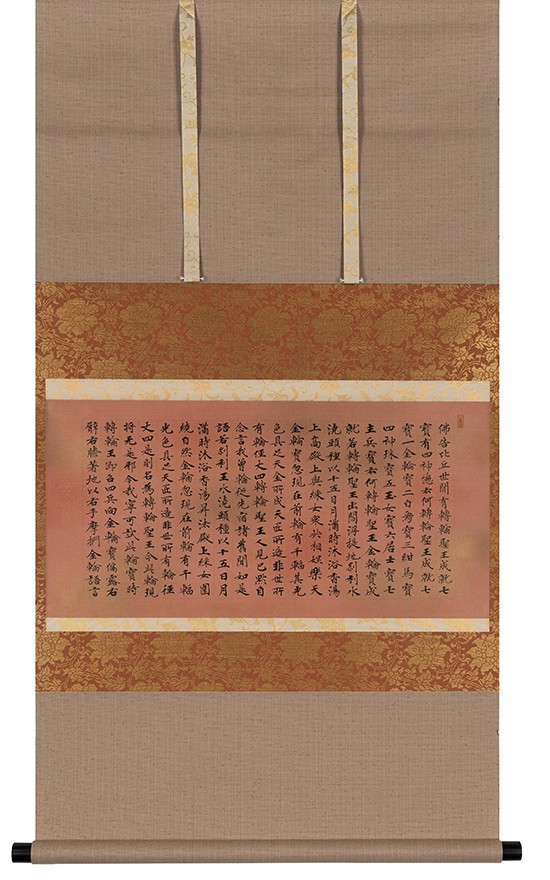 佛告比丘世間有轉輪聖王成就七
寶有四神德云何轉輪聖王成就七
寶一金輪寶二白象寶三紺馬寶
四神珠寶五玉女寶六居士寶七
主兵寶云何轉輪聖王金輪寶成
就若轉輪聖王出閻浮提地刹利水
澆頭種以十五日月滿時沐浴香湯
上高殿上與婇女眾共相娛樂天
金輪寶忽現在前輪有千輻其光
色具足天金所成天匠所造非世所
有輪徑丈四轉輪聖王見已默自
念言我曾從先宿諸舊聞如是
語若刹利王水澆頭種以十五日月
滿時沐浴香湯昇法殿上婇女圍
繞自然金輪忽現在前輪有千輻
光色具足天匠所造非世所有輪徑
丈四是則名為轉輪聖王今此輪現
將无是耶今我寧可試此輪寶時
轉輪王即召四兵向金輪寶偏露右
臂右膝著地以右手摩捫金輪語言